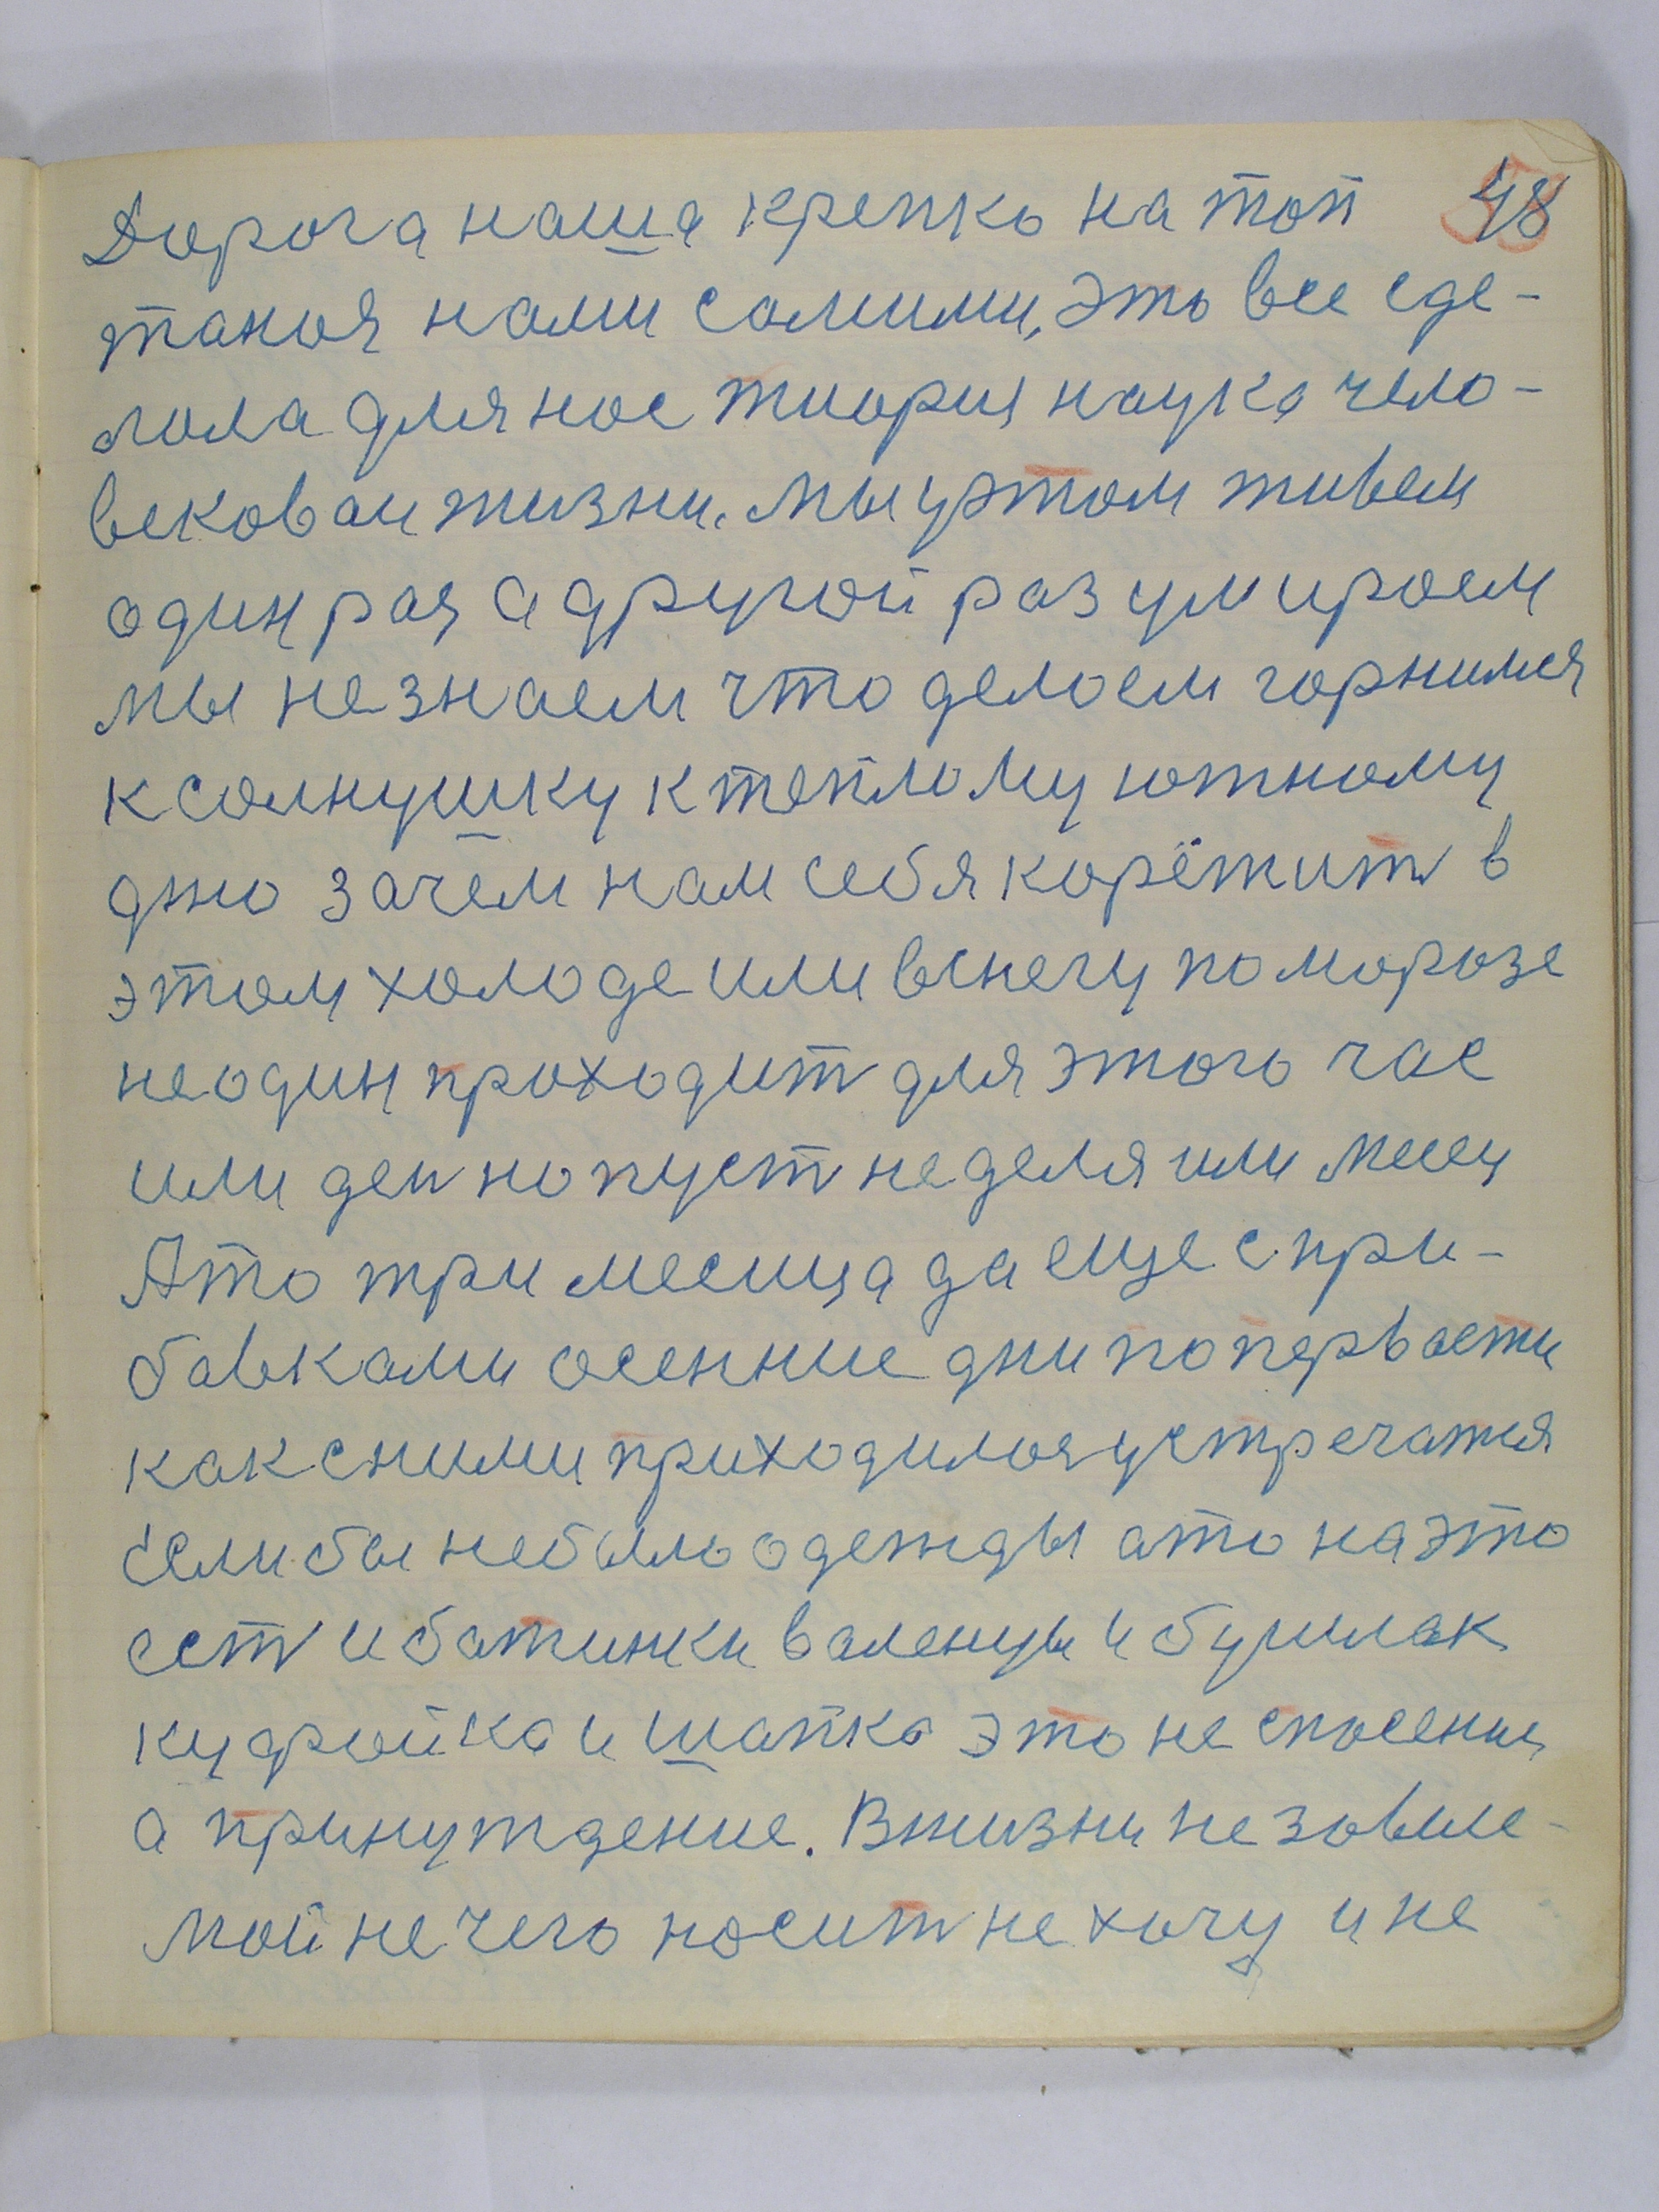 Дорога наша крепко на топ 48
таноя нами самими, это все сде-
лала для нос тиория наука чело-
вековаи жизни. мы у этом живем
один раз а другой раз умироем
мы не знаем что делоем горнимся
к солнушку к теплому южному
дню зачем нам себя корёжит в
этом холоде или в снегу по морозе
не один проходит для этого час
или ден но пуст неделя или месц
А то три месица да еще с при-
бавками осенние дни по первости
как с ними приходилося устречатся
если бы не было одежды а то на это
ест и ботинки валенцы и бушлак
кудройка и шапка это не спосение
а принуждение. В жизни незовисе-
мой не чего носит не хочу и не